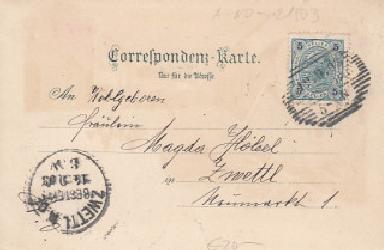 Correspondenz-Karte.
Nur für die Adresse.
An Wohlgeboren
Fräulein
Magda Höbel
Zwettl
Neumarkt 1.
ZWETTL
BESTELLT